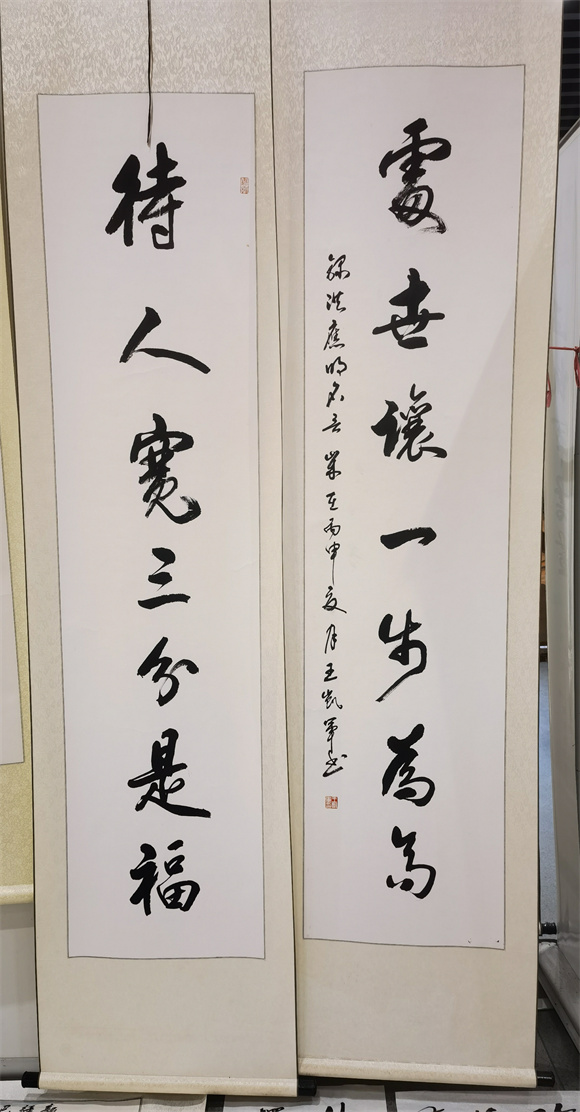 處世讓一步為高
錄洪應明名言歲在丙申夏月王凱軍書
待人寬三分是福